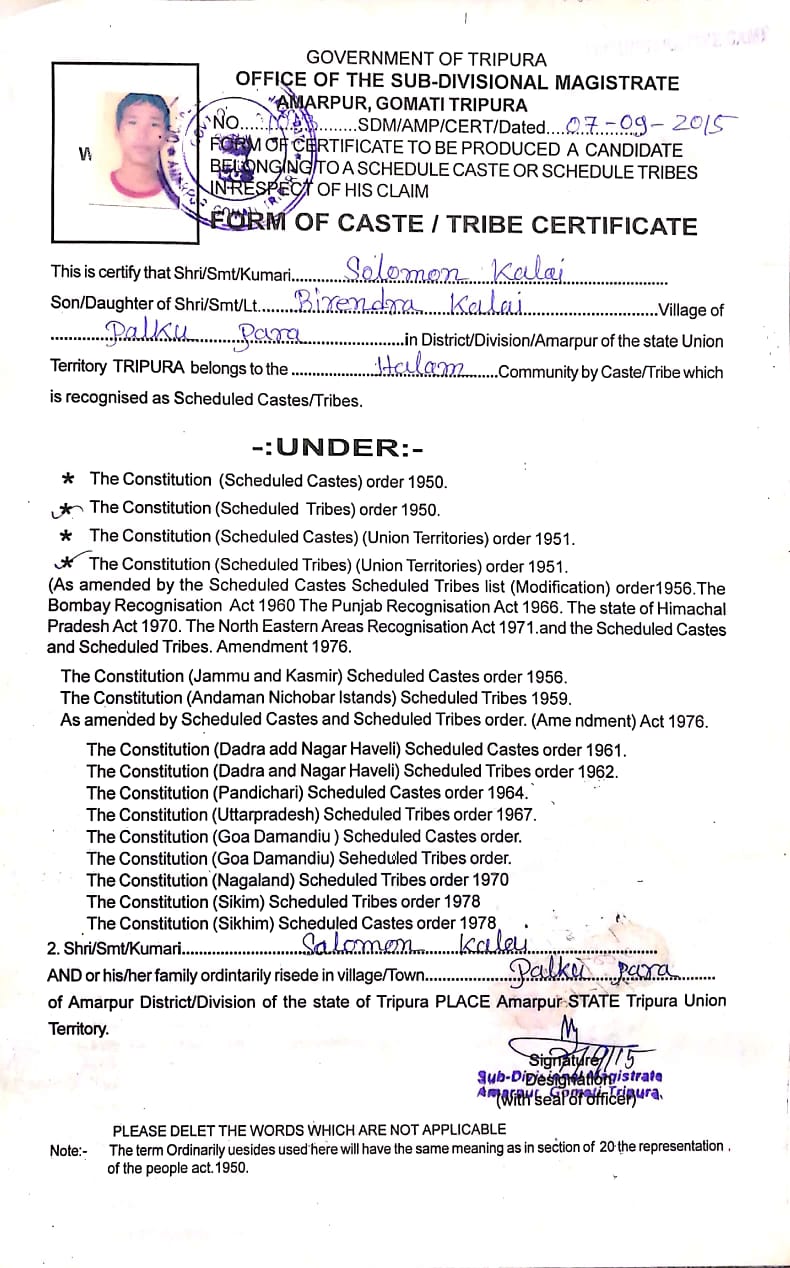 GOVERNMENT OF TRIPURA
OFFICE OF THE SUB-DIVISIONAL MAGISTRATE
AMARPUR, GOMATI TRIPURA
NO....................SDM/AMP/CERT/Dated....07-09-2015
FORM OF CERTIFICATE TO BE PRODUCED A CANDIDATE
BELONGING TO A SCHEDULE CASTE OR SCHEDULE TRIBES
IN RESPECT OF HIS CLAIM
FORM OF CASTE / TRIBE CERTIFICATE
This is certify that Shri/Smt/Kumari............Solomon Kalai......................
Son/Daughter of Shri/Smt/Lt........Birendra Kalai..............................Village of
............Palku Para........................in District/Division/Amarpur of the state Union
Territory TRIPURA belongs to the ....................Halam........Community by Caste/Tribe which
is recognised as Scheduled Castes/Tribes.
-:UNDER:-
* The Constitution (Scheduled Castes) order 1950.
* The Constitution (Scheduled Tribes) order 1950.
* The Constitution (Scheduled Castes) (Union Territories) order 1951.
* The Constitution (Scheduled Tribes) (Union Territories) order 1951.
(As amended by the Scheduled Castes Scheduled Tribes list (Modification) order1956.The
Bombay Recognisation Act 1960 The Punjab Recognisation Act 1966. The state of Himachal
Pradesh Act 1970. The North Eastern Areas Recognisation Act 1971.and the Scheduled Castes
and Scheduled Tribes. Amendment 1976.
The Constitution (Jammu and Kasmir) Scheduled Castes order 1956.
The Constitution (Andaman Nichobar Istands) Scheduled Tribes 1959.
As amended by Scheduled Castes and Scheduled Tribes order. (Ame ndment) Act 1976.
The Constitution (Dadra add Nagar Haveli) Scheduled Castes order 1961.
The Constitution (Dadra and Nagar Haveli) Scheduled Tribes order 1962.
The Constitution (Pandichari) Scheduled Castes order 1964.
The Constitution (Uttarpradesh) Scheduled Tribes order 1967.
The Constitution (Goa Damandiu ) Scheduled Castes order.
The Constitution (Goa Damandiu) Seheduled Tribes order.
The Constitution (Nagaland) Scheduled Tribes order 1970
The Constitution (Sikim) Scheduled Tribes order 1978
The Constitution (Sikhim) Scheduled Castes order 1978
2. Shri/Smt/Kumari........................Salomon Kalai......................
AND or his/her family ordintarily risede in village/Town................Palku Para........
of Amarpur District/Division of the state of Tripura PLACE Amarpur STATE Tripura Union
Territory.
Signature
Sub-Divisional Magistrate
Designation
Amarpur, Gomati Tripura.
(with seal of officer)
PLEASE DELET THE WORDS WHICH ARE NOT APPLICABLE
Note:- The term Ordinarily uesides used here will have the same meaning as in section of 20 the representation
of the people act.1950.